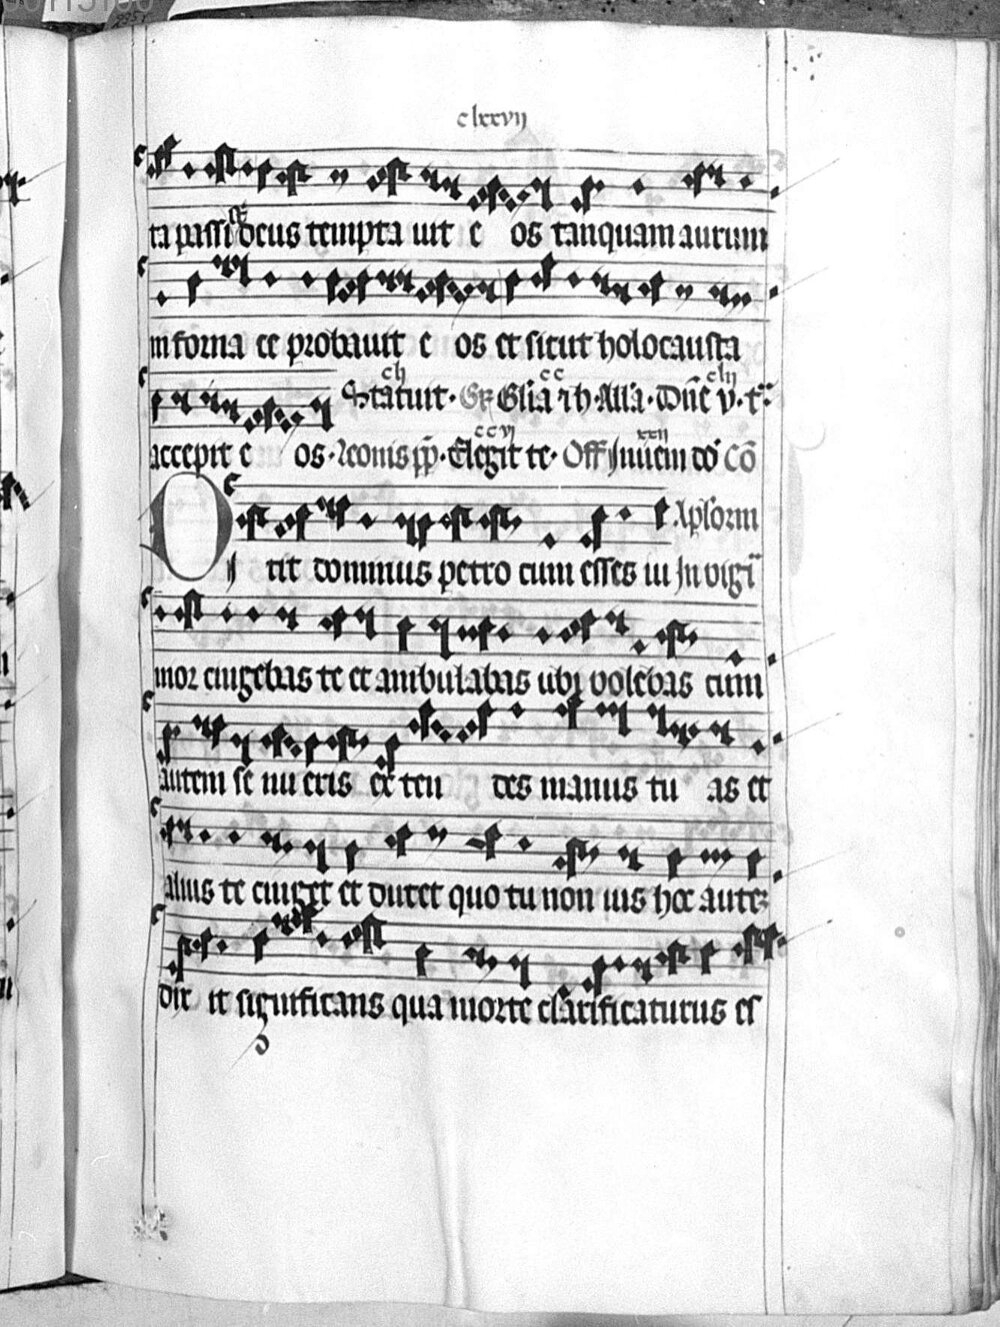 clxxvij
ta passi deus tempta uit e os tanquam aurum
in forna ce probauit e os et sicut holocausta
clj cc clij
Statuit. Gr̄ Glīa ⁊ h. Alla. Dn̄e v. tͣ.
ccvj xxij
accepit e os. Leonis pp̄. Elegit te. Off Inueni dd̄ Cō
Aplorum
Dixit dominus petro cum esses iu In vigiͣ
nior cingebas te et ambulabas ubi volebas cum
autem se nu eris ex ten des manus tu as et
alius te cinget et ducet quo tu non uis hoc autē
dix it significans qua morte clarificaturus es